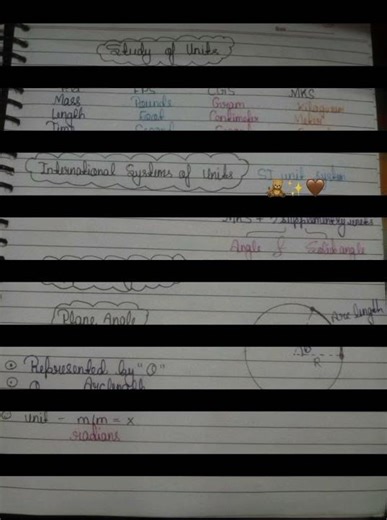 Study of Units
FPS CGS MKS
Mass Pounds Gram Kilogram
Length Foot Centimeter Meter
Time
International Systems of Units SI unit system
MKS + supplementary units
Angle & Solid angle
Plane Angle
Arc length
θ
R
Represented by "θ"
θ Arc length
Unit - m/m = x
radians